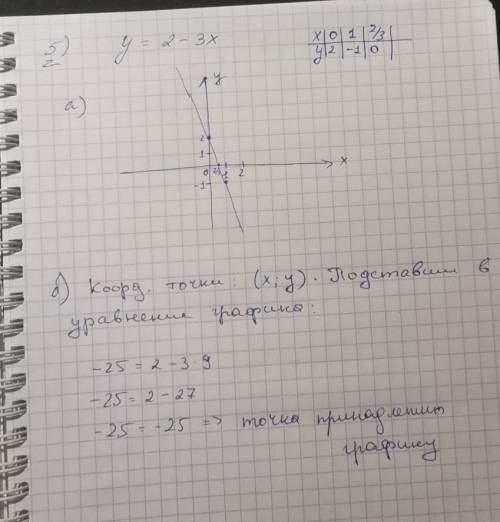 5) y = 2 - 3x
x | 0 | 1 | 2/3
y | 2 | -1 | 0
а)
y
2
1
0 2/3 1 2 x
-1
б) Коорд. точки: (x; y). Подставим в
уравнение графика:
-25 = 2 - 3·9
-25 = 2 - 27
-25 = -25 => точка принадлежит
графику